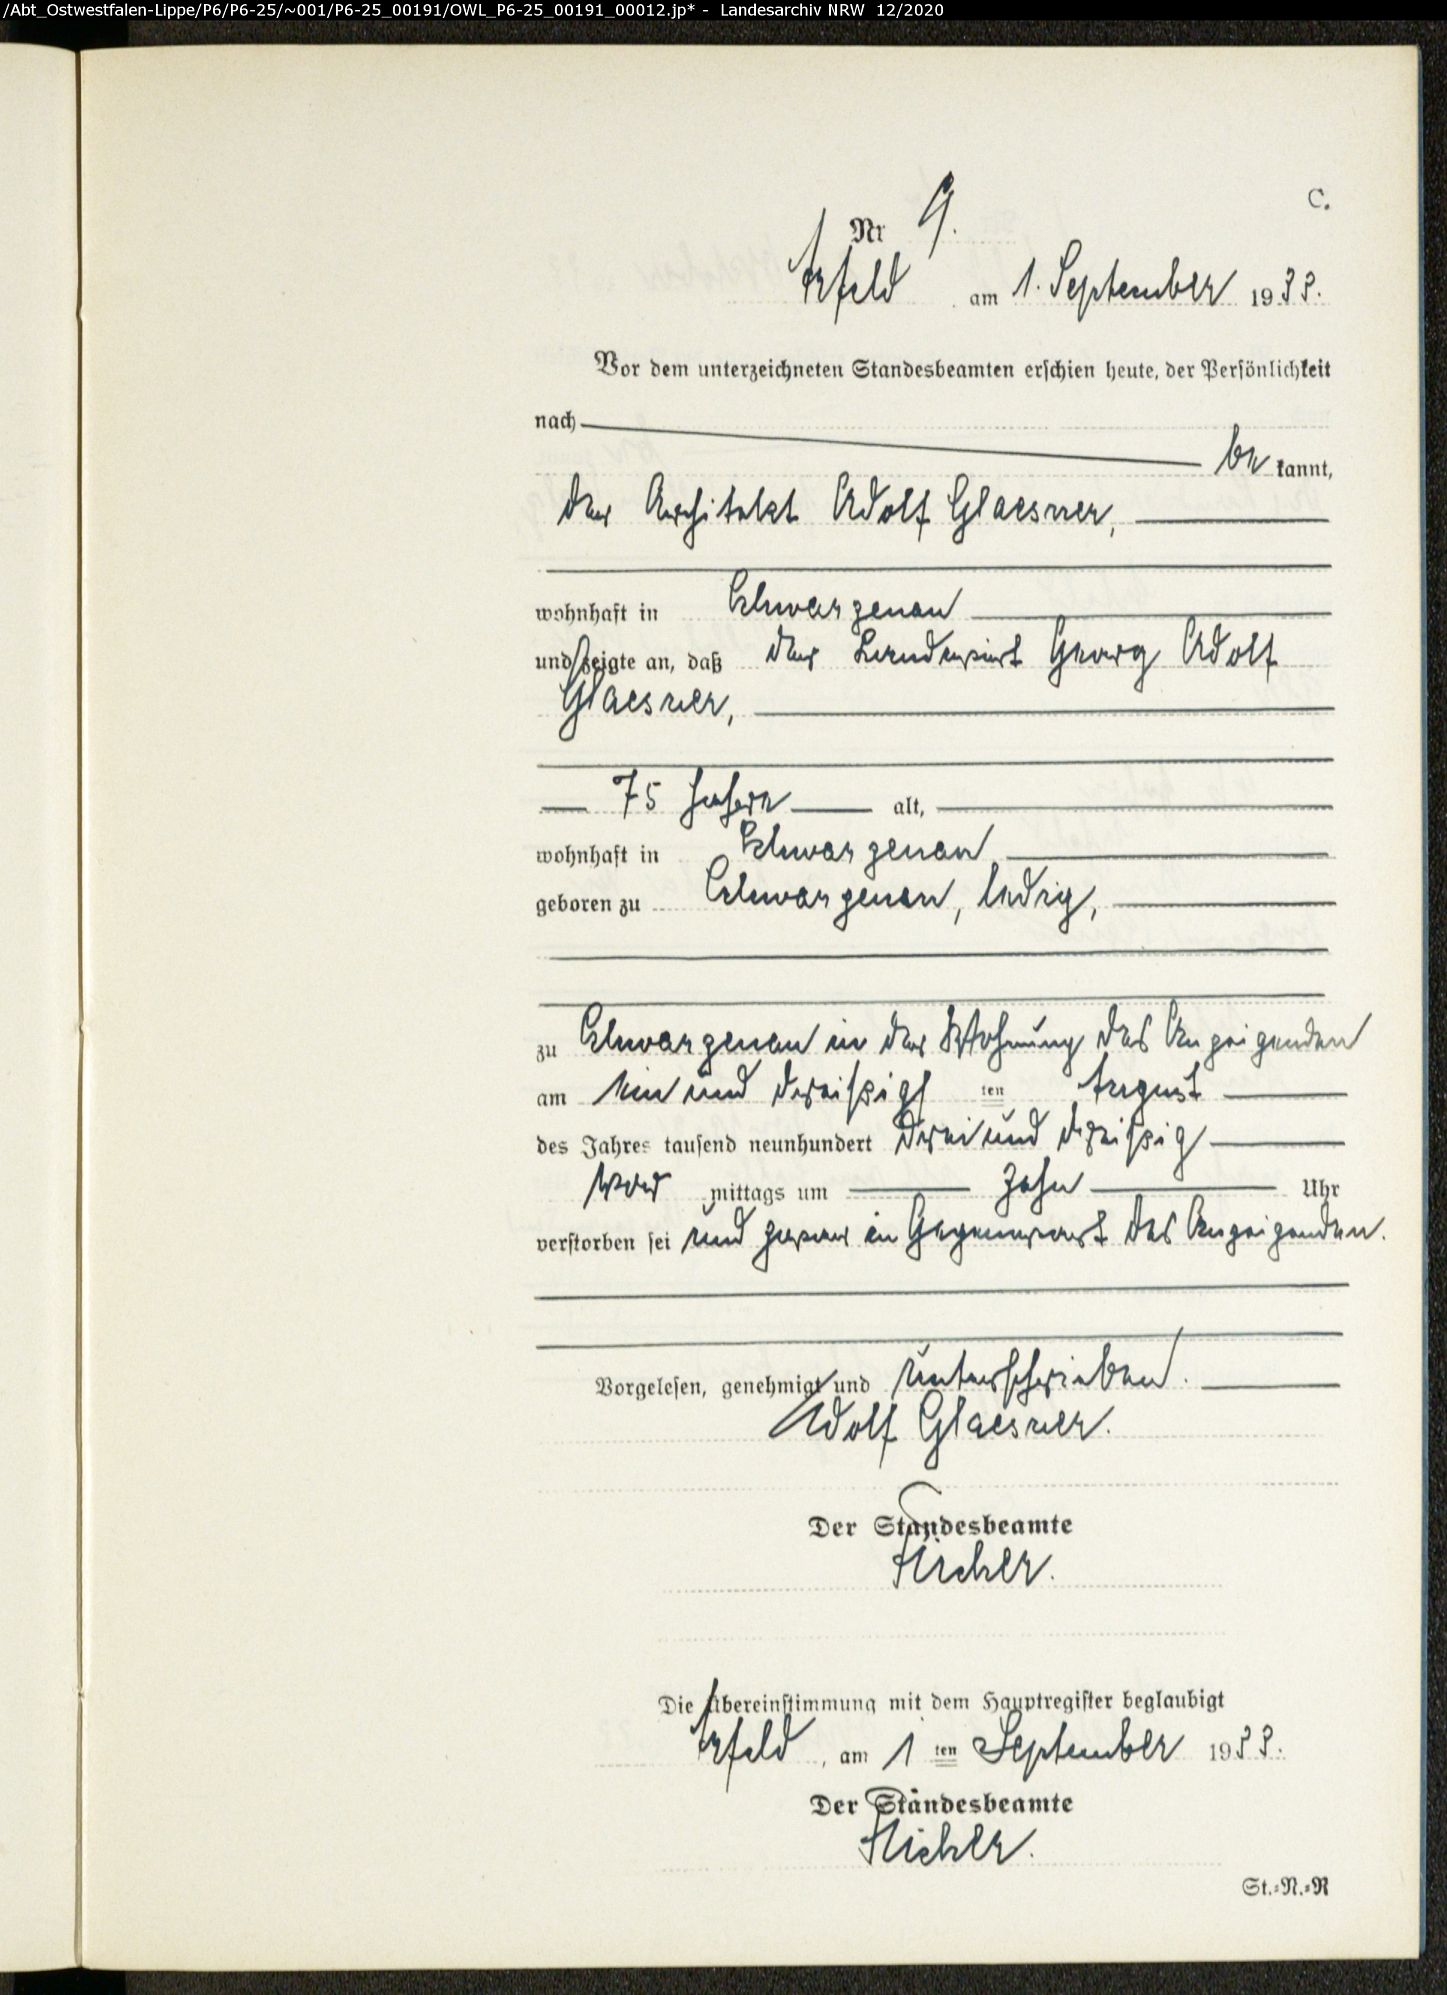 /Abt_Ostwestfalen-Lippe/P6/P6-25/~001/P6-25_00191/OWL_P6-25_00191_00012.jp* - Landesarchiv NRW 12/2020
C.
Nr 9.
Arfeld am 1. September 1933.
Vor dem unterzeichneten Standesbeamten erschien heute, der Persönlichkeit
nach
be kannt,
der Architekt Adolf Glaesner,
wohnhaft in Schwarzenau
und zeigte an, daß der Landwirt Georg Adolf
Glaesner,
75 Jahre alt,
wohnhaft in Schwarzenau
geboren zu Schwarzenau, ledig,
zu Schwarzenau in der Wohnung des Anzeigenden
am ein und dreißigs ten August
des Jahres tausend neunhundert drei und dreißig
vor mittags um zehn Uhr
verstorben sei und zwar in Gegenwart des Anzeigenden.
Vorgelesen, genehmigt und unterschrieben.
Adolf Glaesner.
Der Standesbeamte
Die Übereinstimmung mit dem Hauptregister beglaubigt
Arfeld, am 1 ten September 1933.
Der Standesbeamte
St.=N.=R